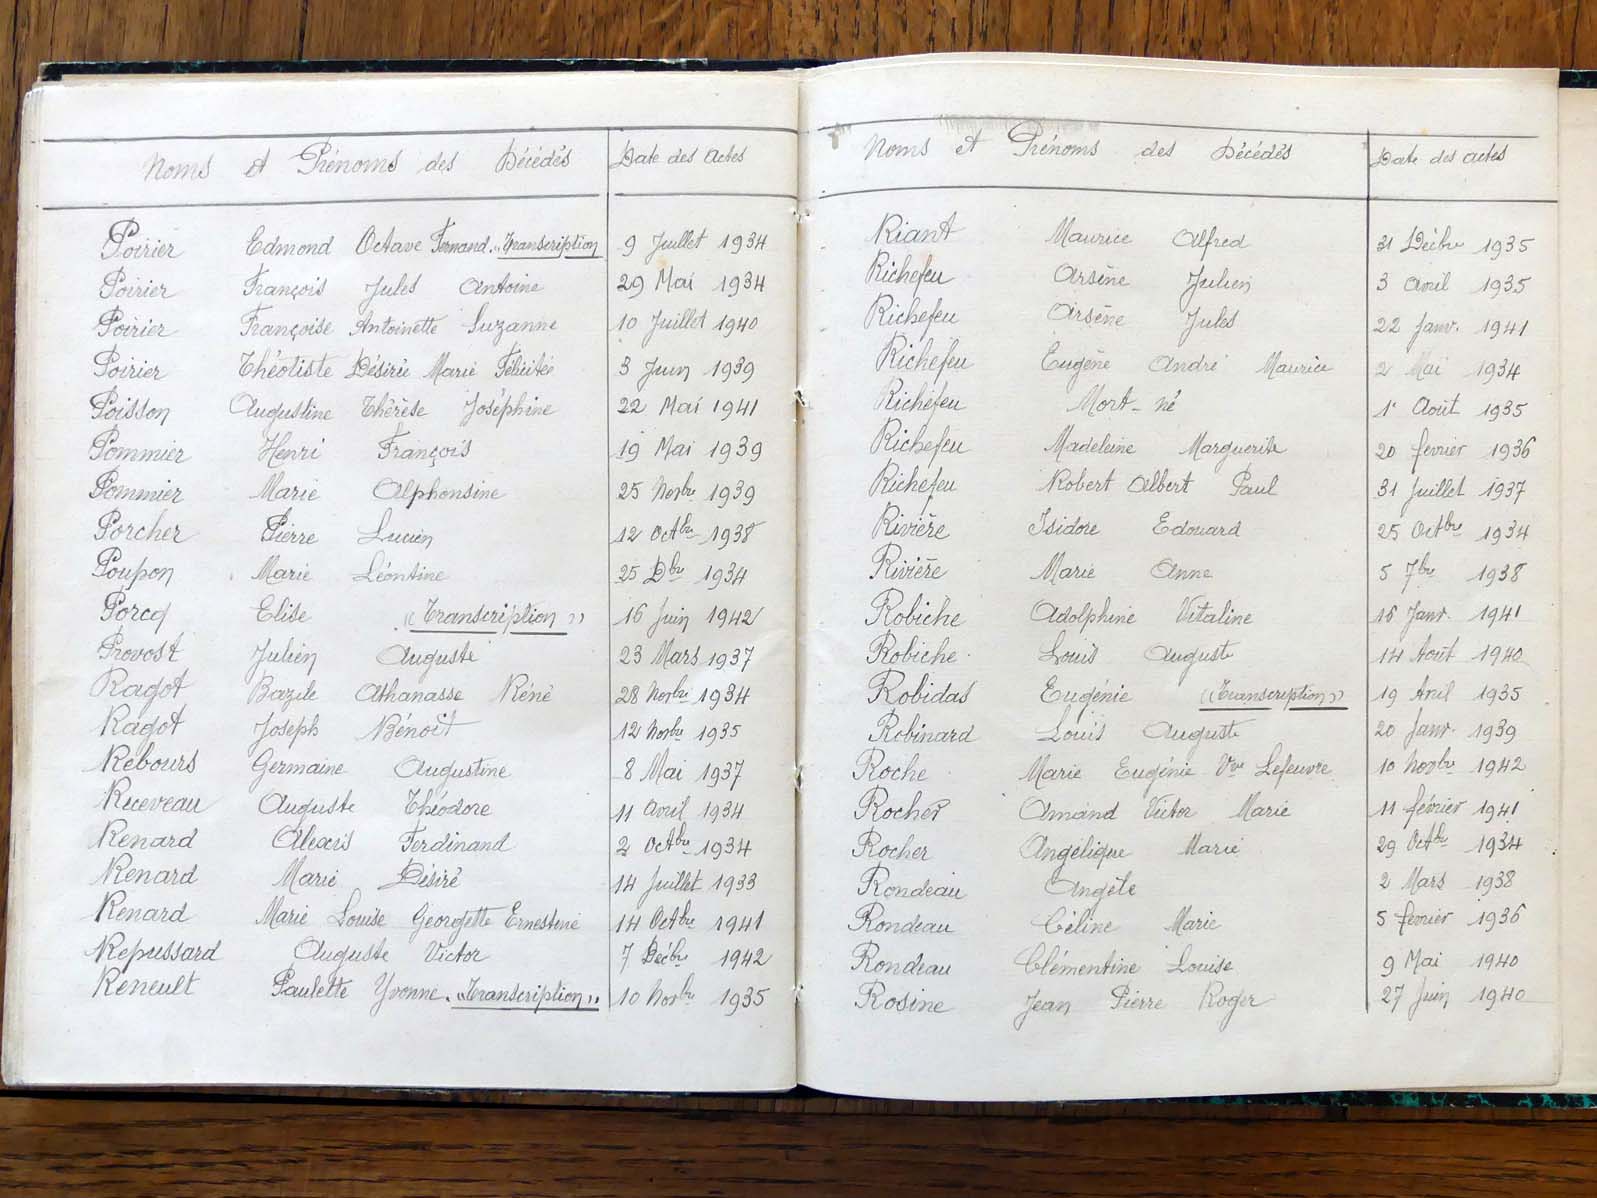 Noms et Prénoms des Décédés Date des actes
Poirier Edmond Octave Fernand. "Transcription 9 Juillet 1934
Poirier François Jules Antoine 29 Mai 1934
Poirier Françoise Antoinette Suzanne 10 Juillet 1940
Poirier Théotiste Désirée Marie Félicitée 3 Juin 1939
Poisson Augustine Thérèse Joséphine 22 Mai 1941
Pommier Henri François 19 Mai 1939
Pommier Marie Alphonsine 25 Novbre 1939
Porcher Pierre Lucien 12 Octbre 1938
Poupon Marie Léontine 25 Dbre 1934
Porcq Elise "Transcription" 16 Juin 1942
Provost Julien Auguste 23 Mars 1937
Ragot Bazile Athanasse Réné 28 Novbre 1934
Ragot Joseph Bénoit 12 Novbre 1935
Rebours Germaine Augustine 8 Mai 1937
Receveau Auguste Théodore 11 Avril 1934
Renard Alexis Ferdinand 2 Octbre 1934
Renard Marie Désiré 14 Juillet 1933
Renard Marie Louise Georgette Ernestine 14 Octbre 1941
Repussard Auguste Victor 7 Décbre 1942
Reneult Paulette Yvonne. "Transcription" 10 Novbre 1935
Noms et Prénoms des Décédés Date des actes
Riant Maurice Alfred 31 Décbre 1935
Richefeu Arsène Julien 3 Avril 1935
Richefeu Arsène Jules 22 Janv. 1941
Richefeu Eugène André Maurice 2 Mai 1934
Richefeu Mort-né 1er Août 1935
Richefeu Madeleine Marguerite 20 février 1936
Richefeu Robert Albert Paul 31 Juillet 1937
Rivière Isidore Edouard 25 Octbre 1934
Rivière Marie Anne 5 7bre 1938
Robiche Adolphine Vitaline 16 Janv. 1941
Robiche Louis Auguste 14 Août 1940
Robidas Eugénie "Transcription" 19 Avril 1935
Robinard Louis Auguste 20 Janv. 1939
Roche Marie Eugénie Vve Lefeuvre 10 Novbre 1942
Rocher Amand Victor Marie 11 février 1941
Rocher Angélique Marie 29 Octbre 1934
Rondeau Angèle 2 Mars 1938
Rondeau Céline Marie 5 février 1936
Rondeau Clémentine Louise 9 Mai 1940
Rosine Jean Pierre Roger 27 Juin 1940